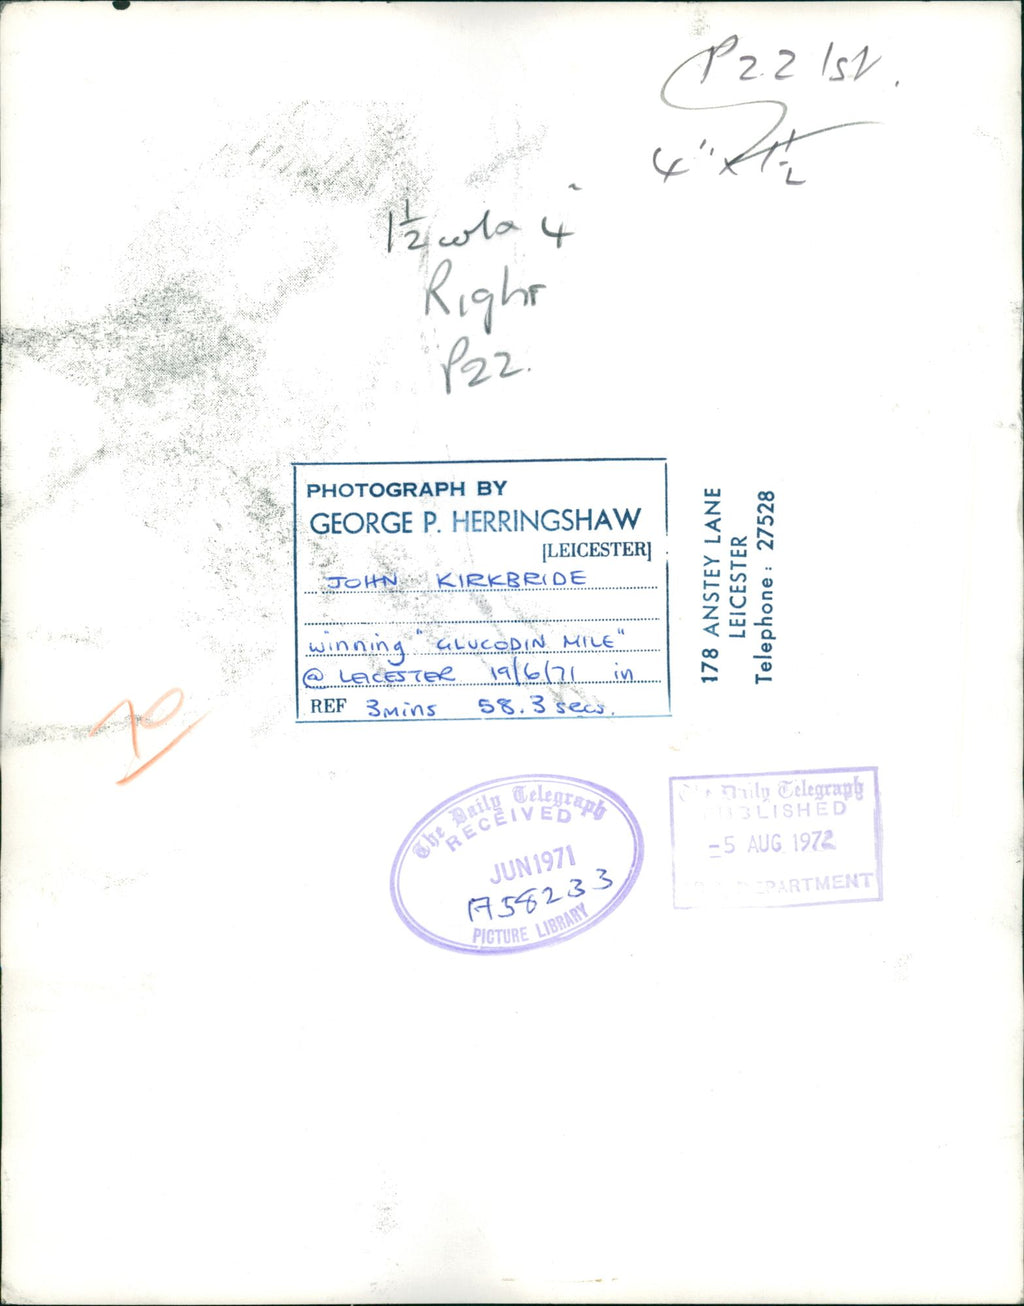 P22 1st.
4" x 1½
1½ cols 4"
Right
P22.
PHOTOGRAPH BY
GEORGE P. HERRINGSHAW
[LEICESTER]
JOHN KIRKBRIDE
winning "GLUCODIN MILE"
@ LEICESTER 19/6/71 in
REF 3mins 58.3 secs.
178 ANSTEY LANE
LEICESTER
Telephone: 27528
70
The Daily Telegraph
RECEIVED
JUN 1971
A58233
PICTURE LIBRARY
The Daily Telegraph
PUBLISHED
-5 AUG 1972
DEPARTMENT